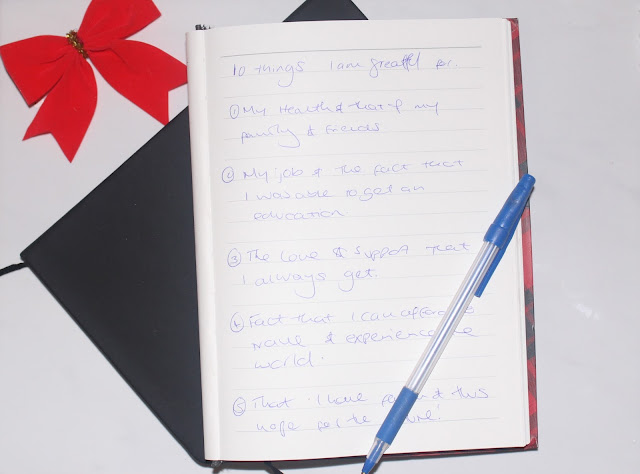 10 Things I am greatful for.
① My Health & that of my
family & friends
② My job & the fact that
I was able to get an
education
③ The love & support that
I always get.
④ Fact that I can afford to
travel & experience the
world.
⑤ That I have & this
hope for the